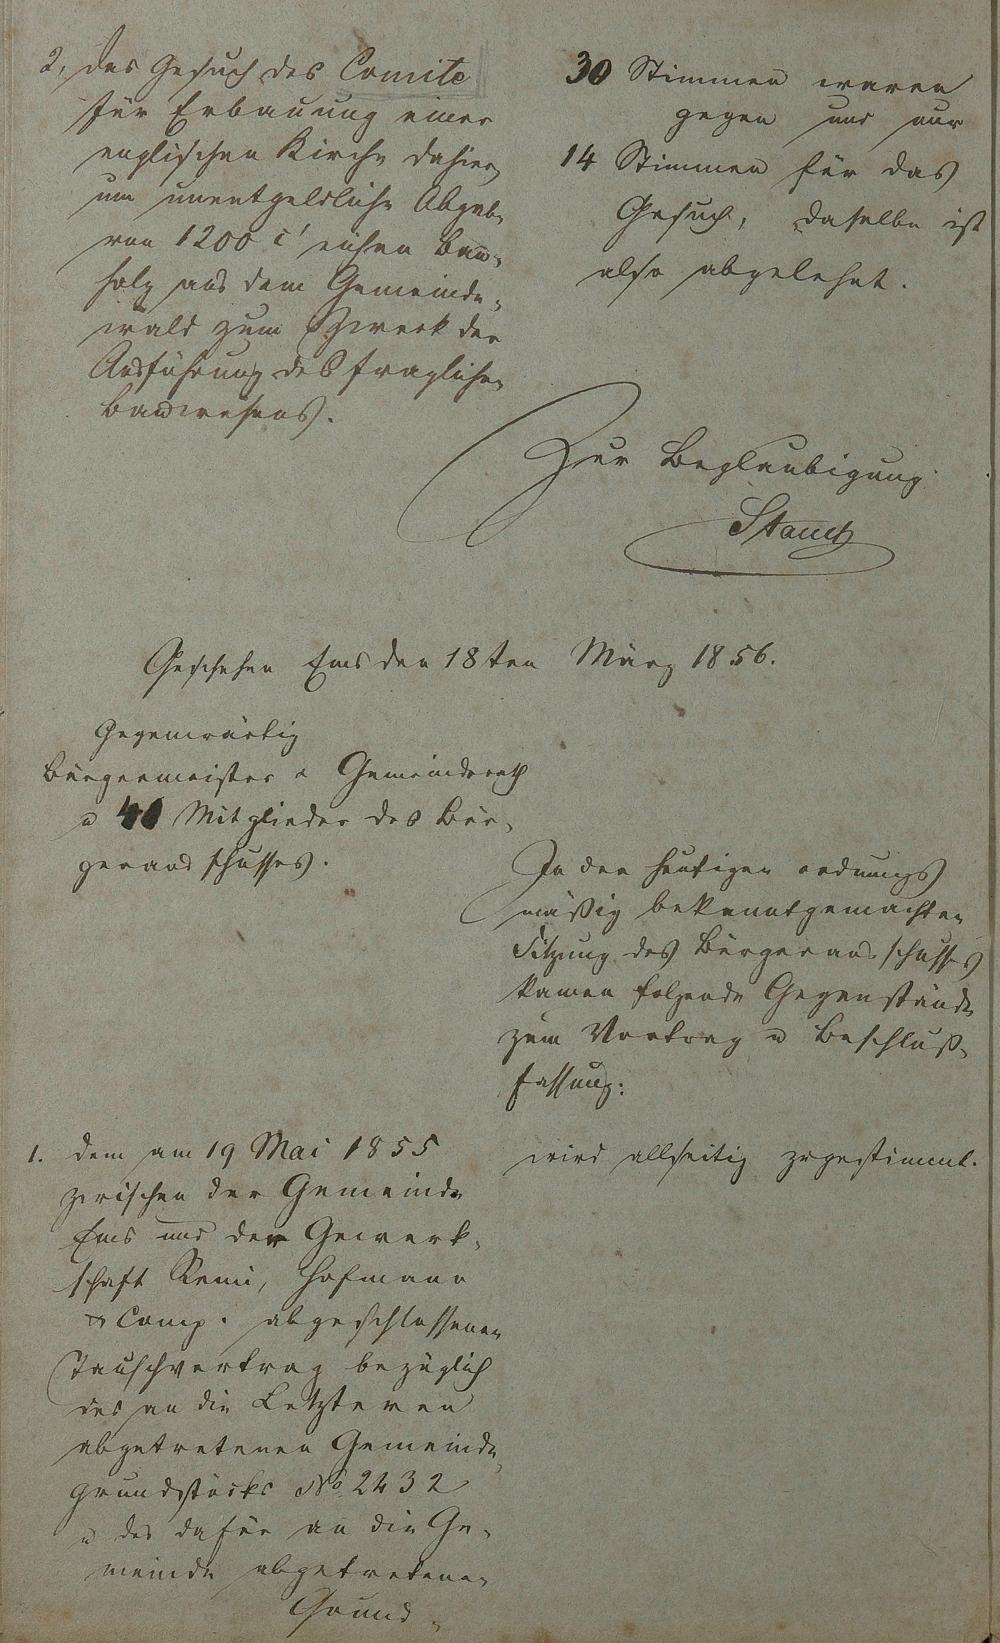 2, das Gesuch des Comite
für Erbauung einer
englischen Kirche dahier,
um unentgeldliche Abgabe
von 1200 c' eichen Bau-
holz aus dem Gemeinde-
wald zum Zweck der
Ausführung des fraglichen
Bauwesens.
30 Stimmen waren
gegen und nur
14 Stimmen für das
Gesuch, dasselbe ist
also abgelehnt.
Zur Beglaubigung
Stauch
Geschehen Ems den 18ten März 1856.
Gegenwärtig
Bürgermeister u Gemeinderath
u 40 Mitglieder des Bür-
gerausschusses.
In der heutigen ordnungs
mäßig bekanntgemachten
Sitzung des Bürgerausschusses
kamen folgende Gegenstände
zum Vortrag u Beschluß-
fassung:
1. dem am 19 Mai 1855
zwischen der Gemeinde
Ems und der Gewerk-
schaft Remi, Hofmann
& Comp. abgeschlossenen
Tauschvertrag bezüglich
des an die Letzteren
abgetretenen Gemeinde-
grundstücks No 2432
u des dafür an die Ge-
meinde abgetretenen
Grund-
wird allseitig zugestimmt.